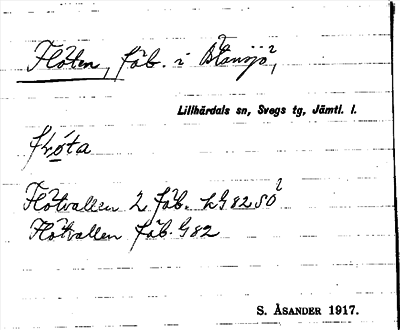 Flöten, fäb. i Blansjö,
Lillhärdals sn, Svegs tg, Jämtl. l.
Flötvallen 2 fäb. kG 82 SO
Flötvallen fäb. G 82
S. ÅSANDER 1917.